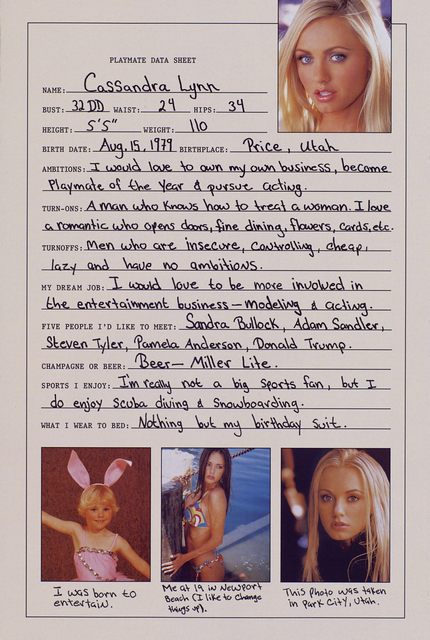 PLAYMATE DATA SHEET
NAME: Cassandra Lynn
BUST: 32 DD WAIST: 24 HIPS: 34
HEIGHT: 5'5" WEIGHT: 110
BIRTH DATE: Aug. 15, 1979 BIRTHPLACE: Price, Utah
AMBITIONS: I would love to own my own business, become
Playmate of the Year & pursue acting.
TURN-ONS: A man who knows how to treat a woman. I love
a romantic who opens doors, fine dining, flowers, cards, etc.
TURNOFFS: Men who are insecure, controlling, cheap,
lazy and have no ambitions.
MY DREAM JOB: I would love to be more involved in
the entertainment business — modeling & acting.
FIVE PEOPLE I'D LIKE TO MEET: Sandra Bullock, Adam Sandler,
Steven Tyler, Pamela Anderson, Donald Trump.
CHAMPAGNE OR BEER: Beer — Miller Lite.
SPORTS I ENJOY: I'm really not a big sports fan, but I
do enjoy scuba diving & snowboarding.
WHAT I WEAR TO BED: Nothing but my birthday suit.
I was born to
entertain.
Me at 19 in Newport
Beach (I like to change
things up).
This photo was taken
in Park City, Utah.